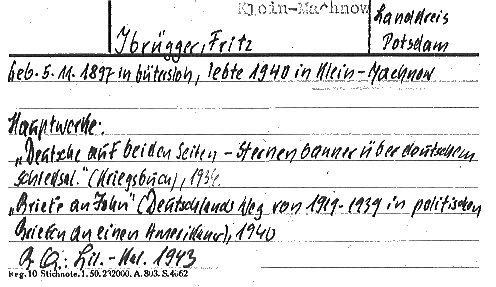 Klein-Machnow
Landkreis
Potsdam
Ibrügger, Fritz
geb. 5. 11. 1897 in Gütersloh, lebte 1940 in Klein-Machnow
Hauptwerke:
„Deutsche auf beiden Seiten - Sternenbanner über deutschem
Schicksal." (Kriegsbuch), 1934.
„Briefe an John" (Deutschlands Weg von 1919-1939 in politischen
Briefen an einen Amerikaner), 1940
Lit.-Kal. 1943
Reg. 10 Stichnote. 1. 50. 232000. A. 803. S. 4662